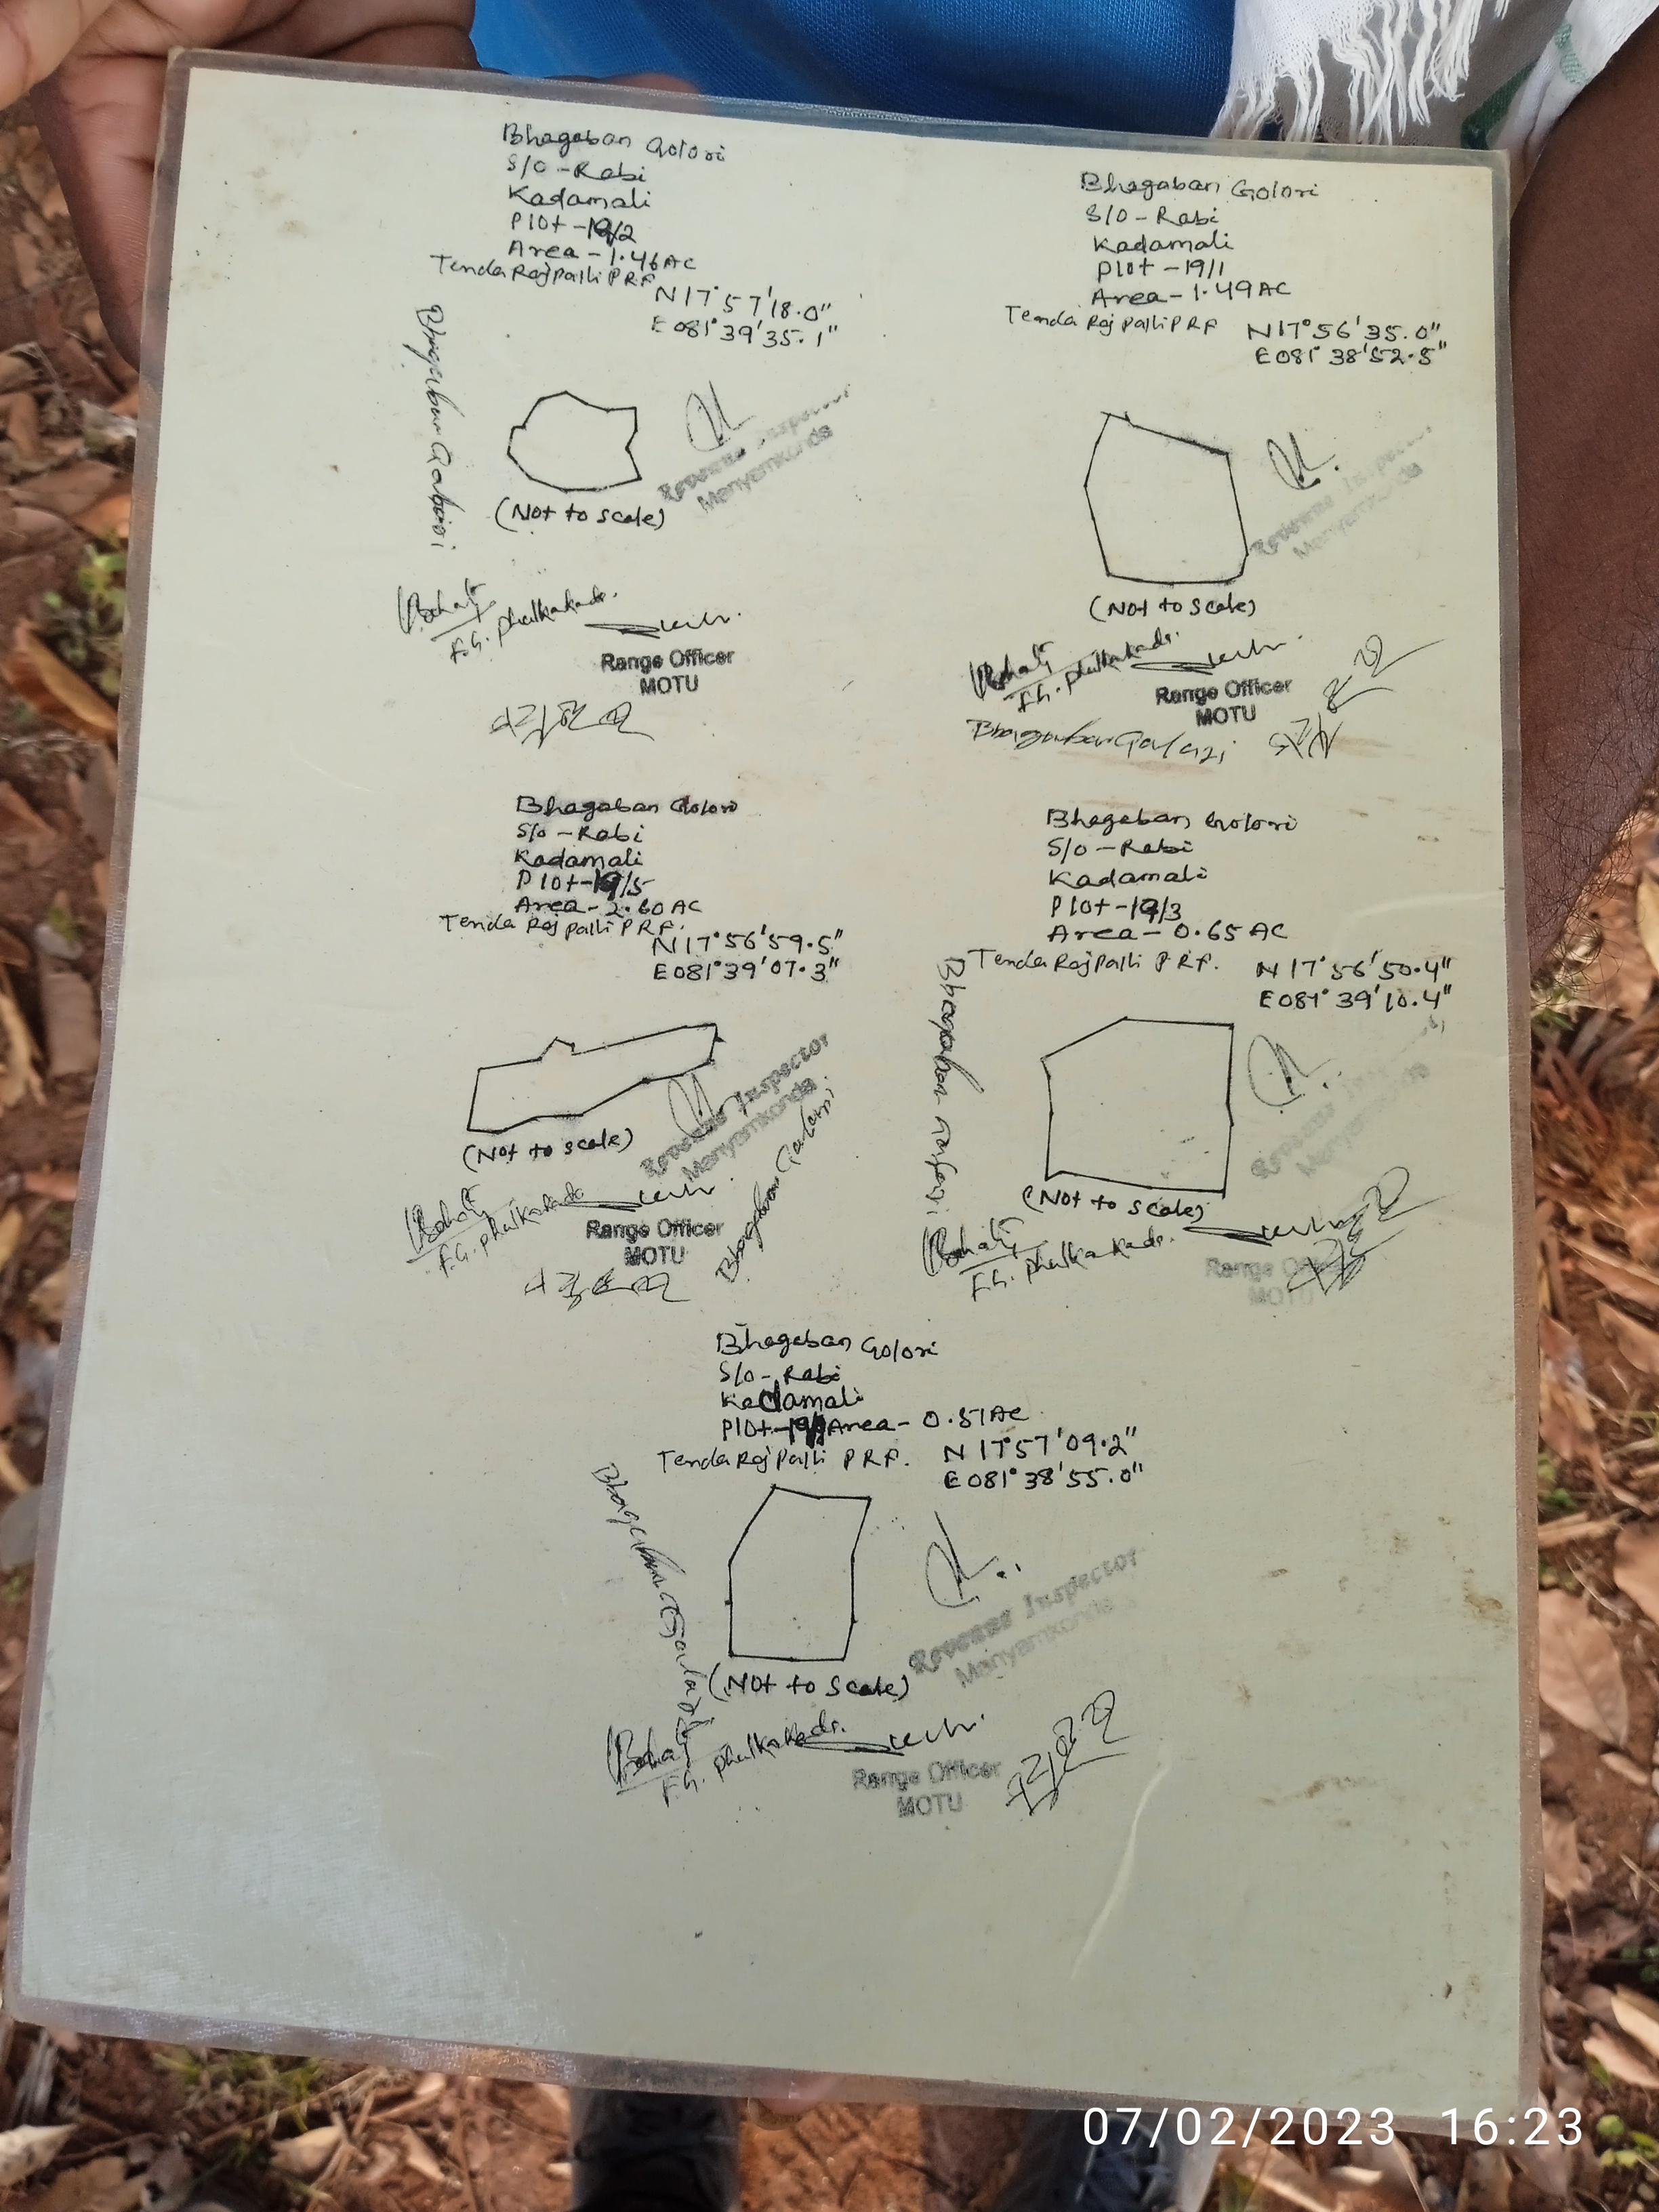 Bhagaban Golori
S/O - Rabi
Kadamali
Plot - 19/2
Area - 1.46 AC
Tenda Raj palli P R F
N 17° 57' 18.0"
E 081° 39' 35.1"
(Not to scale)
Revenue Inspector
Manyamkonda
F.G. Phulkakadr.
Range Officer
MOTU
Bhagaban Golori
S/O - Rabi
Kadamali
Plot - 19/1
Area - 1.49 AC
Tenda Raj palli P R F
N 17° 56' 35.0"
E 081° 38' 52.5"
(Not to scale)
Revenue Inspector
Manyamkonda
F.G. Phulkakadr.
Range Officer
MOTU
Bhagaban Golori
S/o - Rabi
Kadamali
Plot - 19/5
Area - 2.60 AC
Tenda Raj palli P R F.
N 17° 56' 59.5"
E 081° 39' 07.3"
(Not to scale)
Revenue Inspector
Manyamkonda
F.G. Phulkakadr
Range Officer
MOTU
Bhagaban Golori
S/O - Rabi
Kadamali
Plot - 19/3
Area - 0.65 AC
Tenda Raj Palli P R F.
N 17° 56' 50.4"
E 081° 39' 10.4"
(Not to scale)
Manyamkonda
F.G. Phulkakadr.
Range Officer
MOTU
Bhagaban Golori
S/O - Rabi
Kadamali
Plot Area - 0.51 AC
Tenda Raj Palli P R F.
N 17° 57' 09.2"
E 081° 38' 55.0"
(Not to scale)
Revenue Inspector
Manyamkonda
F.G. Phulkakadr.
Range Officer
MOTU
07/02/2023 16:23